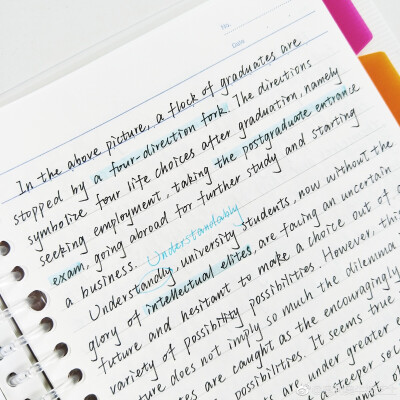 No.
Date
In the above picture, a flock of graduates are
stopped by a four-direction fork. The directions
symbolize four life choices after graduation, namely
seeking employment, taking the postgraduate entrance
exam, going abroad for further study and starting
a business. Understandably
Understandly university students, now without the
glory of intellectual elites, are facing an uncertain
future and hesitant to make a choice out of a
variety of possibility possibilities. However, this
ture does not imply so much the dilemma
ates are caught as the encouragingly
possibilities. It seems true
ts are under greater
of a steeper soc